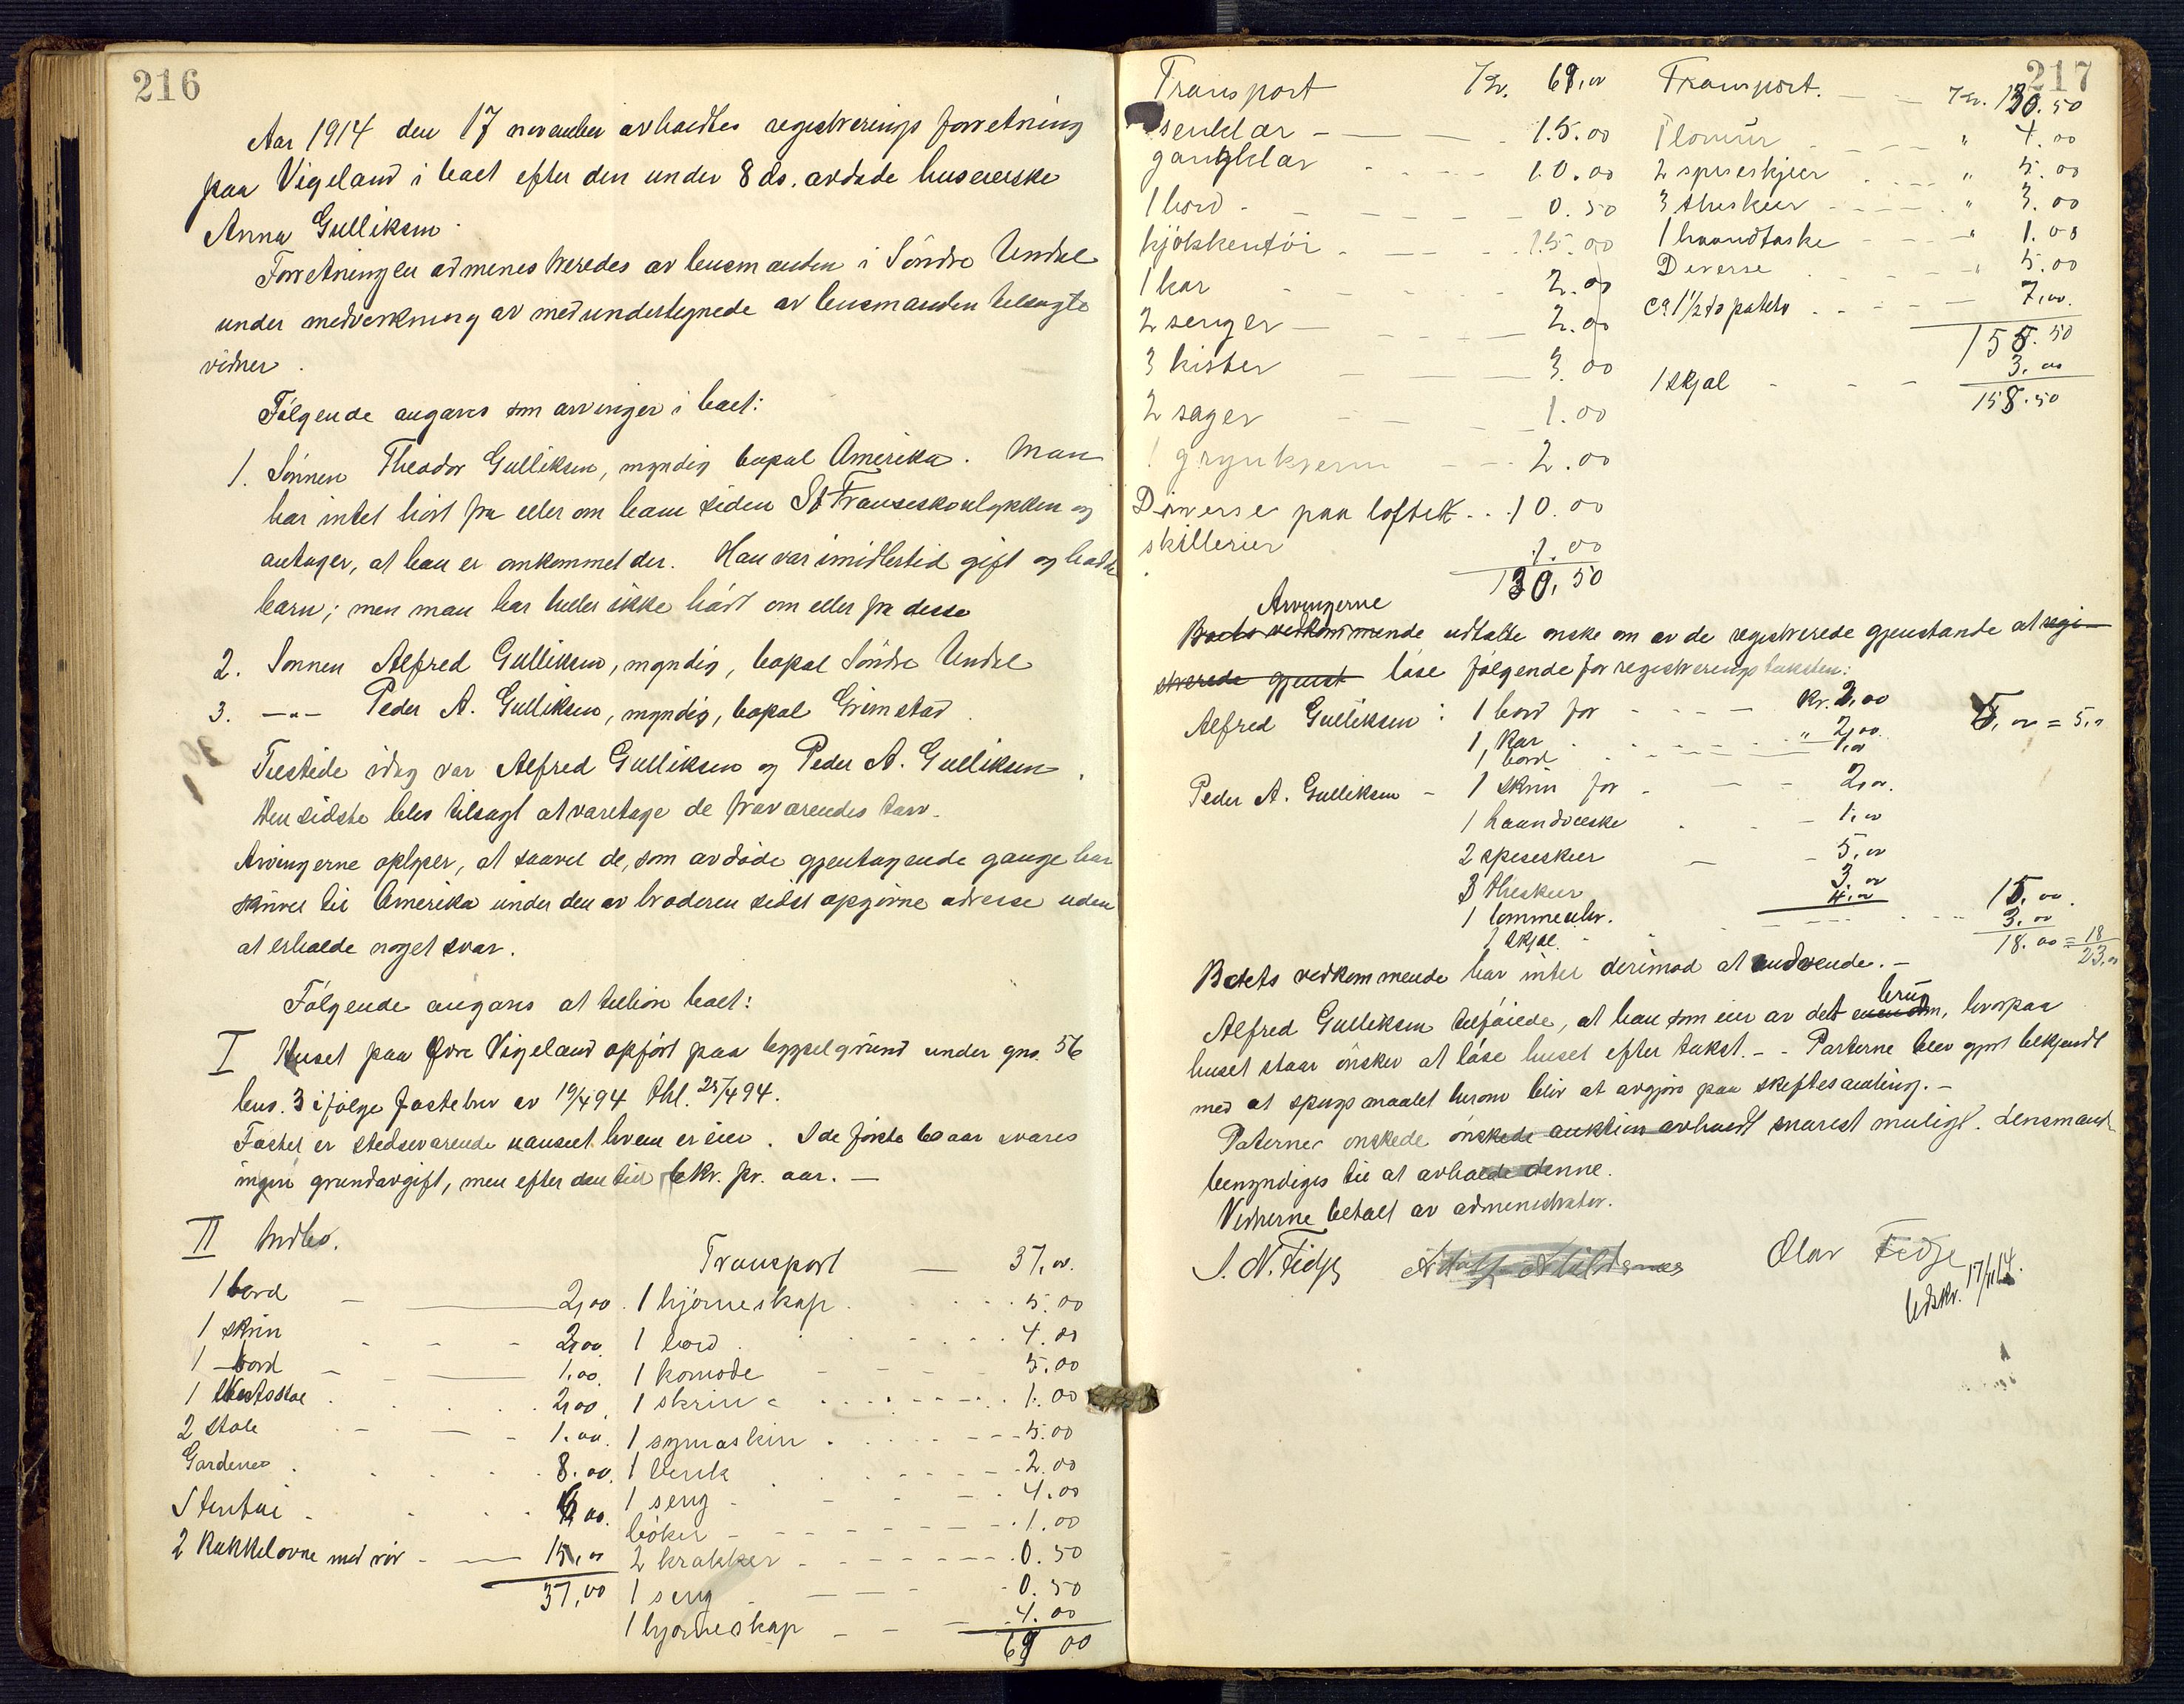 216
Aar 1914 den 17 november avholdtes registrerings forretning
paa Vigeland i boet efter den under 8 ds. avdøde huseierske
Anna Gulliksen.
Forretningen administreredes av lensmanden i Søndre Undal
under medvirkning av medundertegnede av lensmanden tilsagte
vidner.
Følgende angaves som arvinger i boet:
1. Sønnen Theodor Gulliksen, myndig bopæl Amerika. Man
har intet hørt fra eller om ham siden St Franseskoulykken og
antager, at han er omkommet der. Han var imidlertid gift og hadde
barn; men man har heller ikke hørt om eller fra disse
2. Sønnen Alfred Gulliksen, myndig, bopæl Søndre Undal
3. —"— Peder A. Gulliksen, myndig, bopæl Grimstad.
Tilstede idag var Alfred Gulliksen og Peder A. Gulliksen.
Den sidste blev tilsagt at varetage de fraværendes tarv.
Arvingerne oplyser, at saavel de, som avdøde gjentagende gange har
skrevet til Amerika under den av broderen sidst opgivne adresse uden
at erholde noget svar.
Følgende angaves at tilhøre boet:
I Huset paa Øvre Vigeland opført paa bygselgrund under gno. 56
bno. 3 ifølge festebrev av 19/4 94 thl. 25/4 94.
Festet er stedsevarende uanseet hvem er eier. I de første 60 aar svares
ingen grundavgift, men efter den tid kr. pr. aar. —
II Indbo.
1 bord — 2,00
1 skrin - - - 2,00
1 bord — 1,00
1 stol 2,00
2 stole - — 1.00
Gardiner 8.00
Stentøi 00
2 Kakkelovne med rør - — 15,00
37,00
Transport — 37,00
1 hjørneskap 5.00
1 bord 4.00
1 komode 5.00
1 skrin 1.00
1 symaskin 5.00
1 benk 2.00
1 seng 4.00
bøker 1.00
2 krakker 0.50
1 seng 0.50
1 hjørneskap 4.00
69 00
Transport Kr. 69,00
senklær 15.00
gangklær 10.00
1 bord 0.50
kjøkkentøi 15.00
1 kar 2.00
2 senger 2.00
3 kister 3.00
2 sager 1.00
1 grynkvern 2.00
Diverse paa loftet 10.00
skillerier 1.00
130,50
217
Transport. Kr. 130.50
1 lomur " 4.00
2 spiseskjeer " 5.00
3 theskeer " 3.00
1 haandtaske " 1.00
Diverse " 5.00
ca 1 1/2 td poteto 7,00
155.50
1 skjal 3.00
158.50
Arvingerne
Boets vedkommende udtalte ønske om av de registrerede gjenstande at regi-
strerede gjenst løse følgende for registreringstaksten:
Alfred Gulliksen: 1 bord for kr. 2,00
1 kar " 2,00
1 bord 1,00 5,00 = 5,00
Peder A. Gulliksen - 1 skrin for 2,00
1 haandveske 1,00
2 spiseskeer 5,00
3 theskeer 3,00
1 lommeuhr. 4,00 15,00
1 skjal 3,00
18.00 = 18
23,00
Boets vedkommende har intet derimod at indvende. —
Alfred Gulliksen tilføiede, at han som eier av det eiendom, bruk hvorpaa
huset staar ønsker at løse huset efter takst. — Parterne blev gjort bekjendt
med at spørgsmaalet herom blir at avgjøre paa skiftesamling. —
Paterne ønskede ønskede auktion avholdt snarest muligt. Lensmand
bemyndiges til at avholde denne.
Vidnerne betalt av administrator.
S. N. Fidje Olav Fidje
Udskr. 17/11 14.